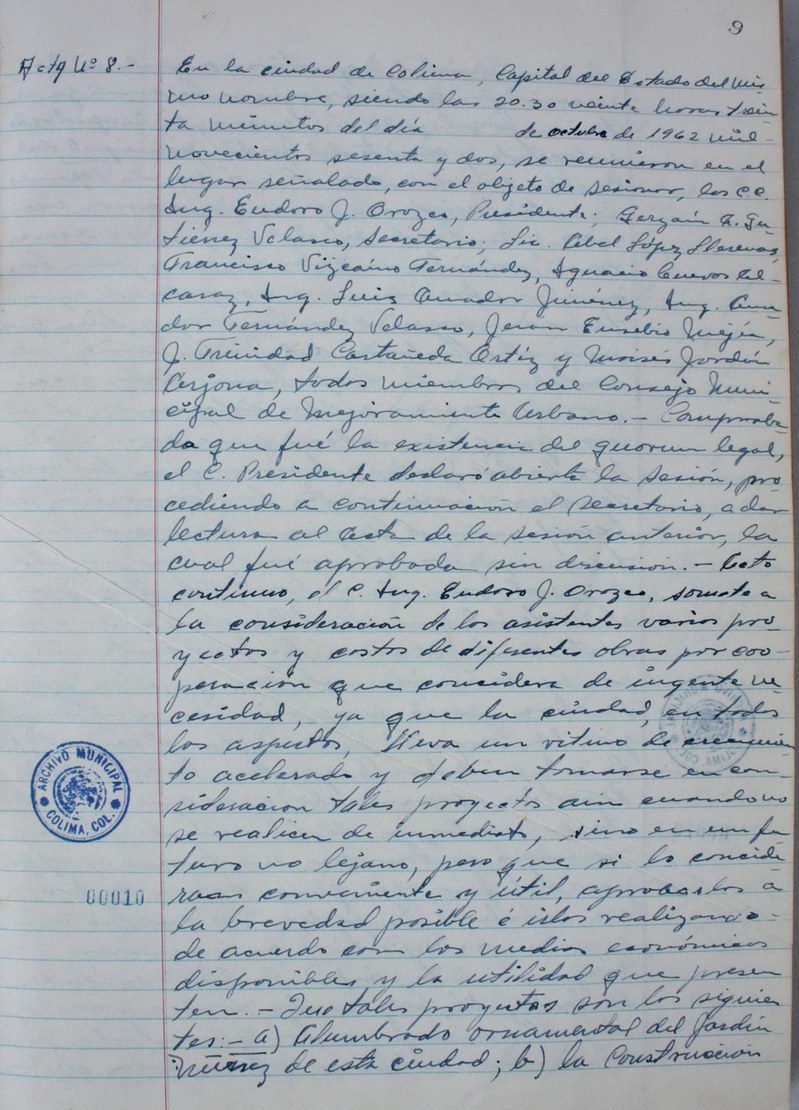 9
Acta Nº 8.-
En la ciudad de Colima, Capital del Estado del mis
mo nombre, siendo las 20.30 veinte horas trein-
ta minutos del día de octubre de 1962 mil
novecientos sesenta y dos, se reunieron en el
lugar señalado, con el objeto de sesionar, los C.C.
Ing. Eudoro J. Orozco, Presidente; Gerzaín A. Gu-
tiérrez Velasco, Secretario; Lic. Abel López Llerenas,
Francisco Vizcaíno Fernández, Ignacio Cuevas Al-
caraz, Ing. Luis Amador Jiménez, Ing. Ama-
dor Fernández Velasco, Juan Eusebio Mejía,
J. Trinidad Castañeda Ortíz y Moisés Jordán
Arjona, todos miembros del Consejo Muni-
cipal de Mejoramiento Urbano.- Comproba-
da que fué la existencia del quorum legal,
el C. Presidente declaró abierta la sesión, pro
cediendo a continuación el Secretario, a dar
lectura al Acta de la sesión anterior, la
cual fué aprobada sin discusion.- Acto
continuo, el C. Ing. Eudoro J. Orozco, somete a
la consideración de los asistentes varios pro-
yectos y costos de diferentes obras por coo-
peración que considera de ingente ne
cesidad, ya que la ciudad, en todos
los aspectos, lleva un ritmo de crecimien
to acelerado y deben tomarse en con-
sideracion tales proyectos aún cuando no
se realicen de inmediato, sino en un fu
turo no lejano, pero que si lo conside
ran conveniente y útil, aprobarlos a
la brevedad posible é irlos realizando-
de acuerdo con los medios económicos
disponibles y la utilidad que presen
ten.- Que tales proyectos son los siguien
tes:- a) Alumbrado ornamental del Jardín
Núñez de esta ciudad; b) la Construcción
ARCHIVO MUNICIPAL
COLIMA, COL.
00010